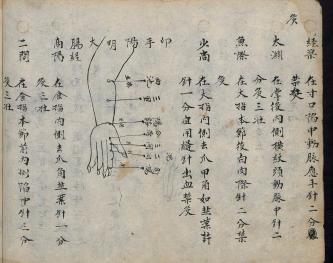 經渠 在寸口陷中動脉應手針二分
禁灸
太淵 在掌後內側橫紋頭動脉中針二
分灸三壯
魚際 在大指本節後白肉際針二分禁
灸
少商 在大指內側去爪甲角如韭葉許
針一分宜用縫針出血禁灸
卯手陽明大
腸經
商陽 在食指內側去爪角韭葉針一分
灸三壯
二間 在食指本節前內側陷中針三分